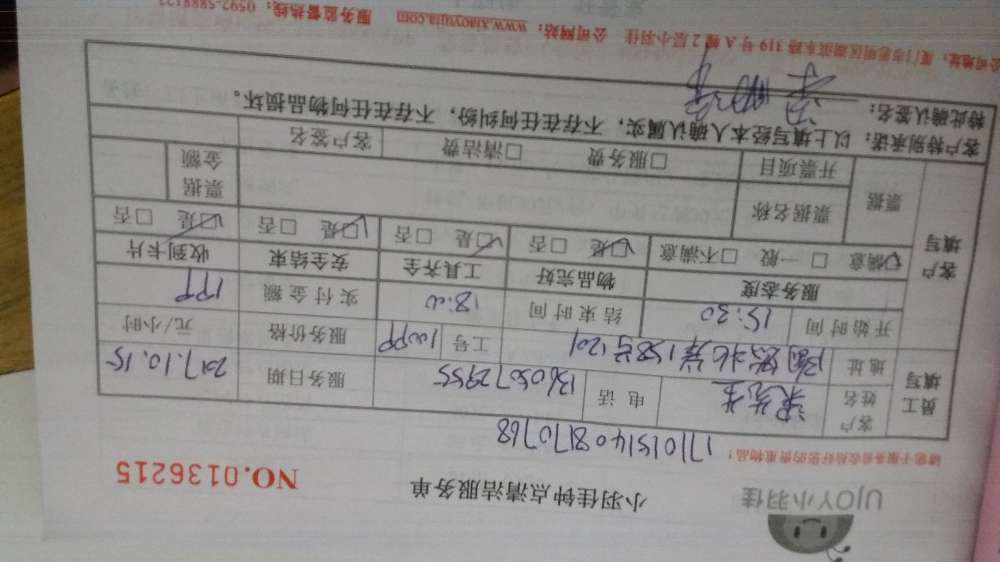 UJOY小羽佳
小羽佳钟点清洁服务单
NO.0136215
请您于服务前收拾好您的贵重物品！
17101514081770768
员工填写
客户姓名 梁先生 电话 13605072955 服务日期 2017.10.15
地址 158号1201 工号 服务价格 元/小时
开始时间 15:30 结束时间 18:00 实付金额
客户填写
服务态度 物品完好 工具齐全 安全结束 收到卡片
☑满意 □一般 □不满意 ☑是 □否 ☑是 □否 ☑是 □否 ☑是 □否
票据 票据名称 票据金额
开票项目 □服务费 □清洁费 客户签名
客户特别承诺：以上填写经本人确认属实，不存在任何纠纷，不存在任何物品损坏。
特此确认签名：
公司地址：厦门市思明区湖滨东路319号A幢2层小羽佳 公司网站：www.xiaoyujia.com 服务监督热线：